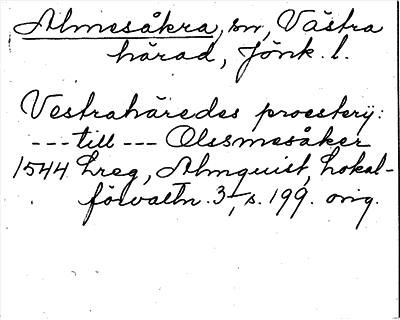 Almesåkra, sn, Västra
härad, Jönk. l.
Vestrahäredes proestery:
--- till --- Olssmesåker
1544 Lreg, Almquist, Lokal-
förvaltn. 3, s. 199. orig.